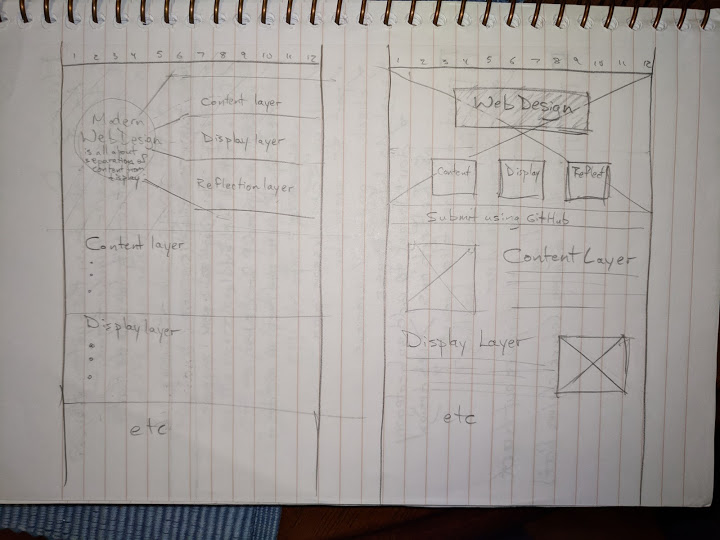 1 2 3 4 5 6 7 8 9 10 11 12
Modern
Web Design
is all about
separation of
content from
display
Content layer
Display layer
Reflection layer
Content layer
Display layer
etc
1 2 3 4 5 6 7 8 9 10 11 12
Web Design
Content
Display
Reflect
Submit using GitHub
Content Layer
Display Layer
etc